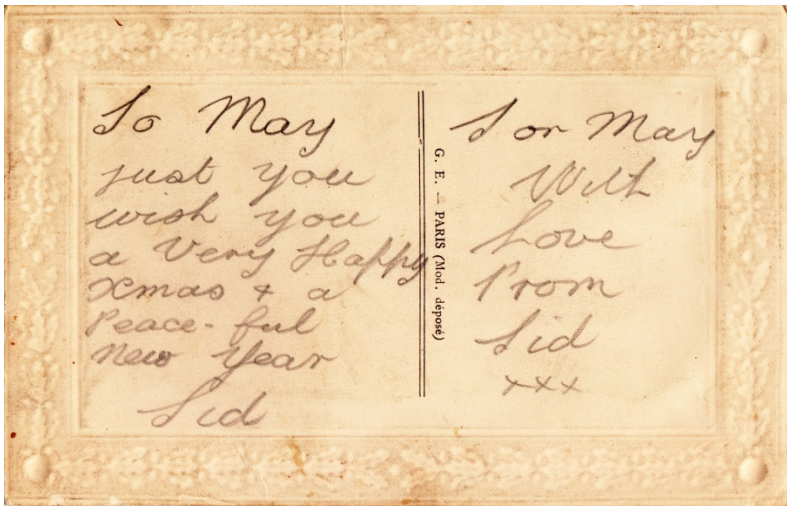 To May
just you
wish you
a Very Happy
Xmas & a
Peace-ful
New Year
Sid
G. E. – PARIS (Mod. déposé)
For May
With
Love
From
Sid
xxx